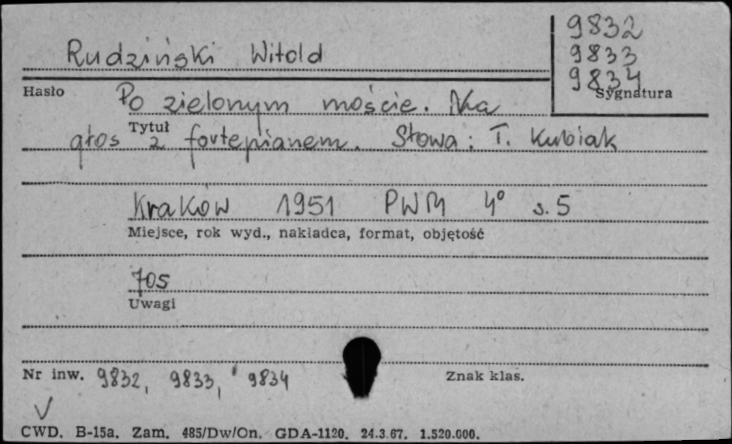 9832
Rudziński Witold 9833
9834
Hasło Sygnatura
Po zielonym moście. Na
Tytuł
głos z fortepianem. Słowa: T. Kubiak
Kraków 1951 PWM 4° s. 5
Miejsce, rok wyd., nakładca, format, objętość
705
Uwagi
Nr inw. 9832, 9833, 9834 Znak klas.
CWD. B-15a. Zam. 485/Dw/On. GDA-1120. 24.3.67. 1.520.000.